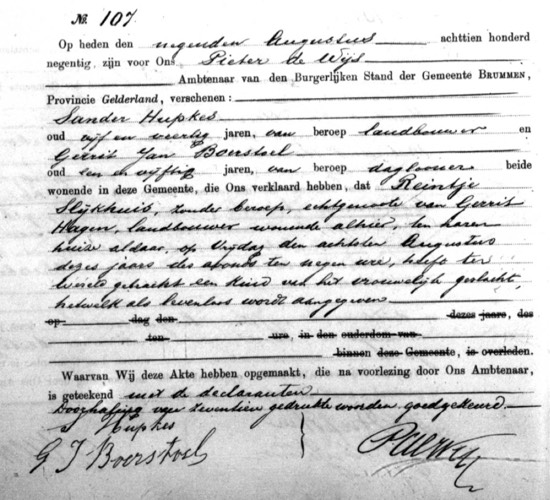 №. 107.
Op heden den negenden Augustus achttien honderd
negentig, zijn voor Ons, Pieter de Wijs
Ambtenaar van den Burgerlijken Stand der Gemeente BRUMMEN,
Provincie Gelderland, verschenen:
Sander Hupkes
oud vijf en veertig jaren, van beroep landbouwer en
Gerrit Jan Boerstoel
oud een en vijftig jaren, van beroep daglooner beide
wonende in deze Gemeente, die Ons verklaard hebben, dat Reintje
Slijkhuis, zonder beroep, echtgenoote van Gerrit
Hagen, landbouwer wonende alhier, ten haren
huize aldaar, op Vrijdag den achtsten Augustus
dezes jaars des avonds ten negen ure, heeft ter
wereld gebracht een kind van het vrouwelijk geslacht,
hetwelk als levenloos wordt aangegeven
op dag den dezes jaars, des
ten ure, in den ouderdom van
binnen deze Gemeente, is overleden.
Waarvan Wij deze Akte hebben opgemaakt, die na voorlezing door Ons Ambtenaar,
is geteekend met de declaranten.
Doorhaling van zeventien gedrukte woorden goedgekeurd.
S Hupkes
G J Boerstoel